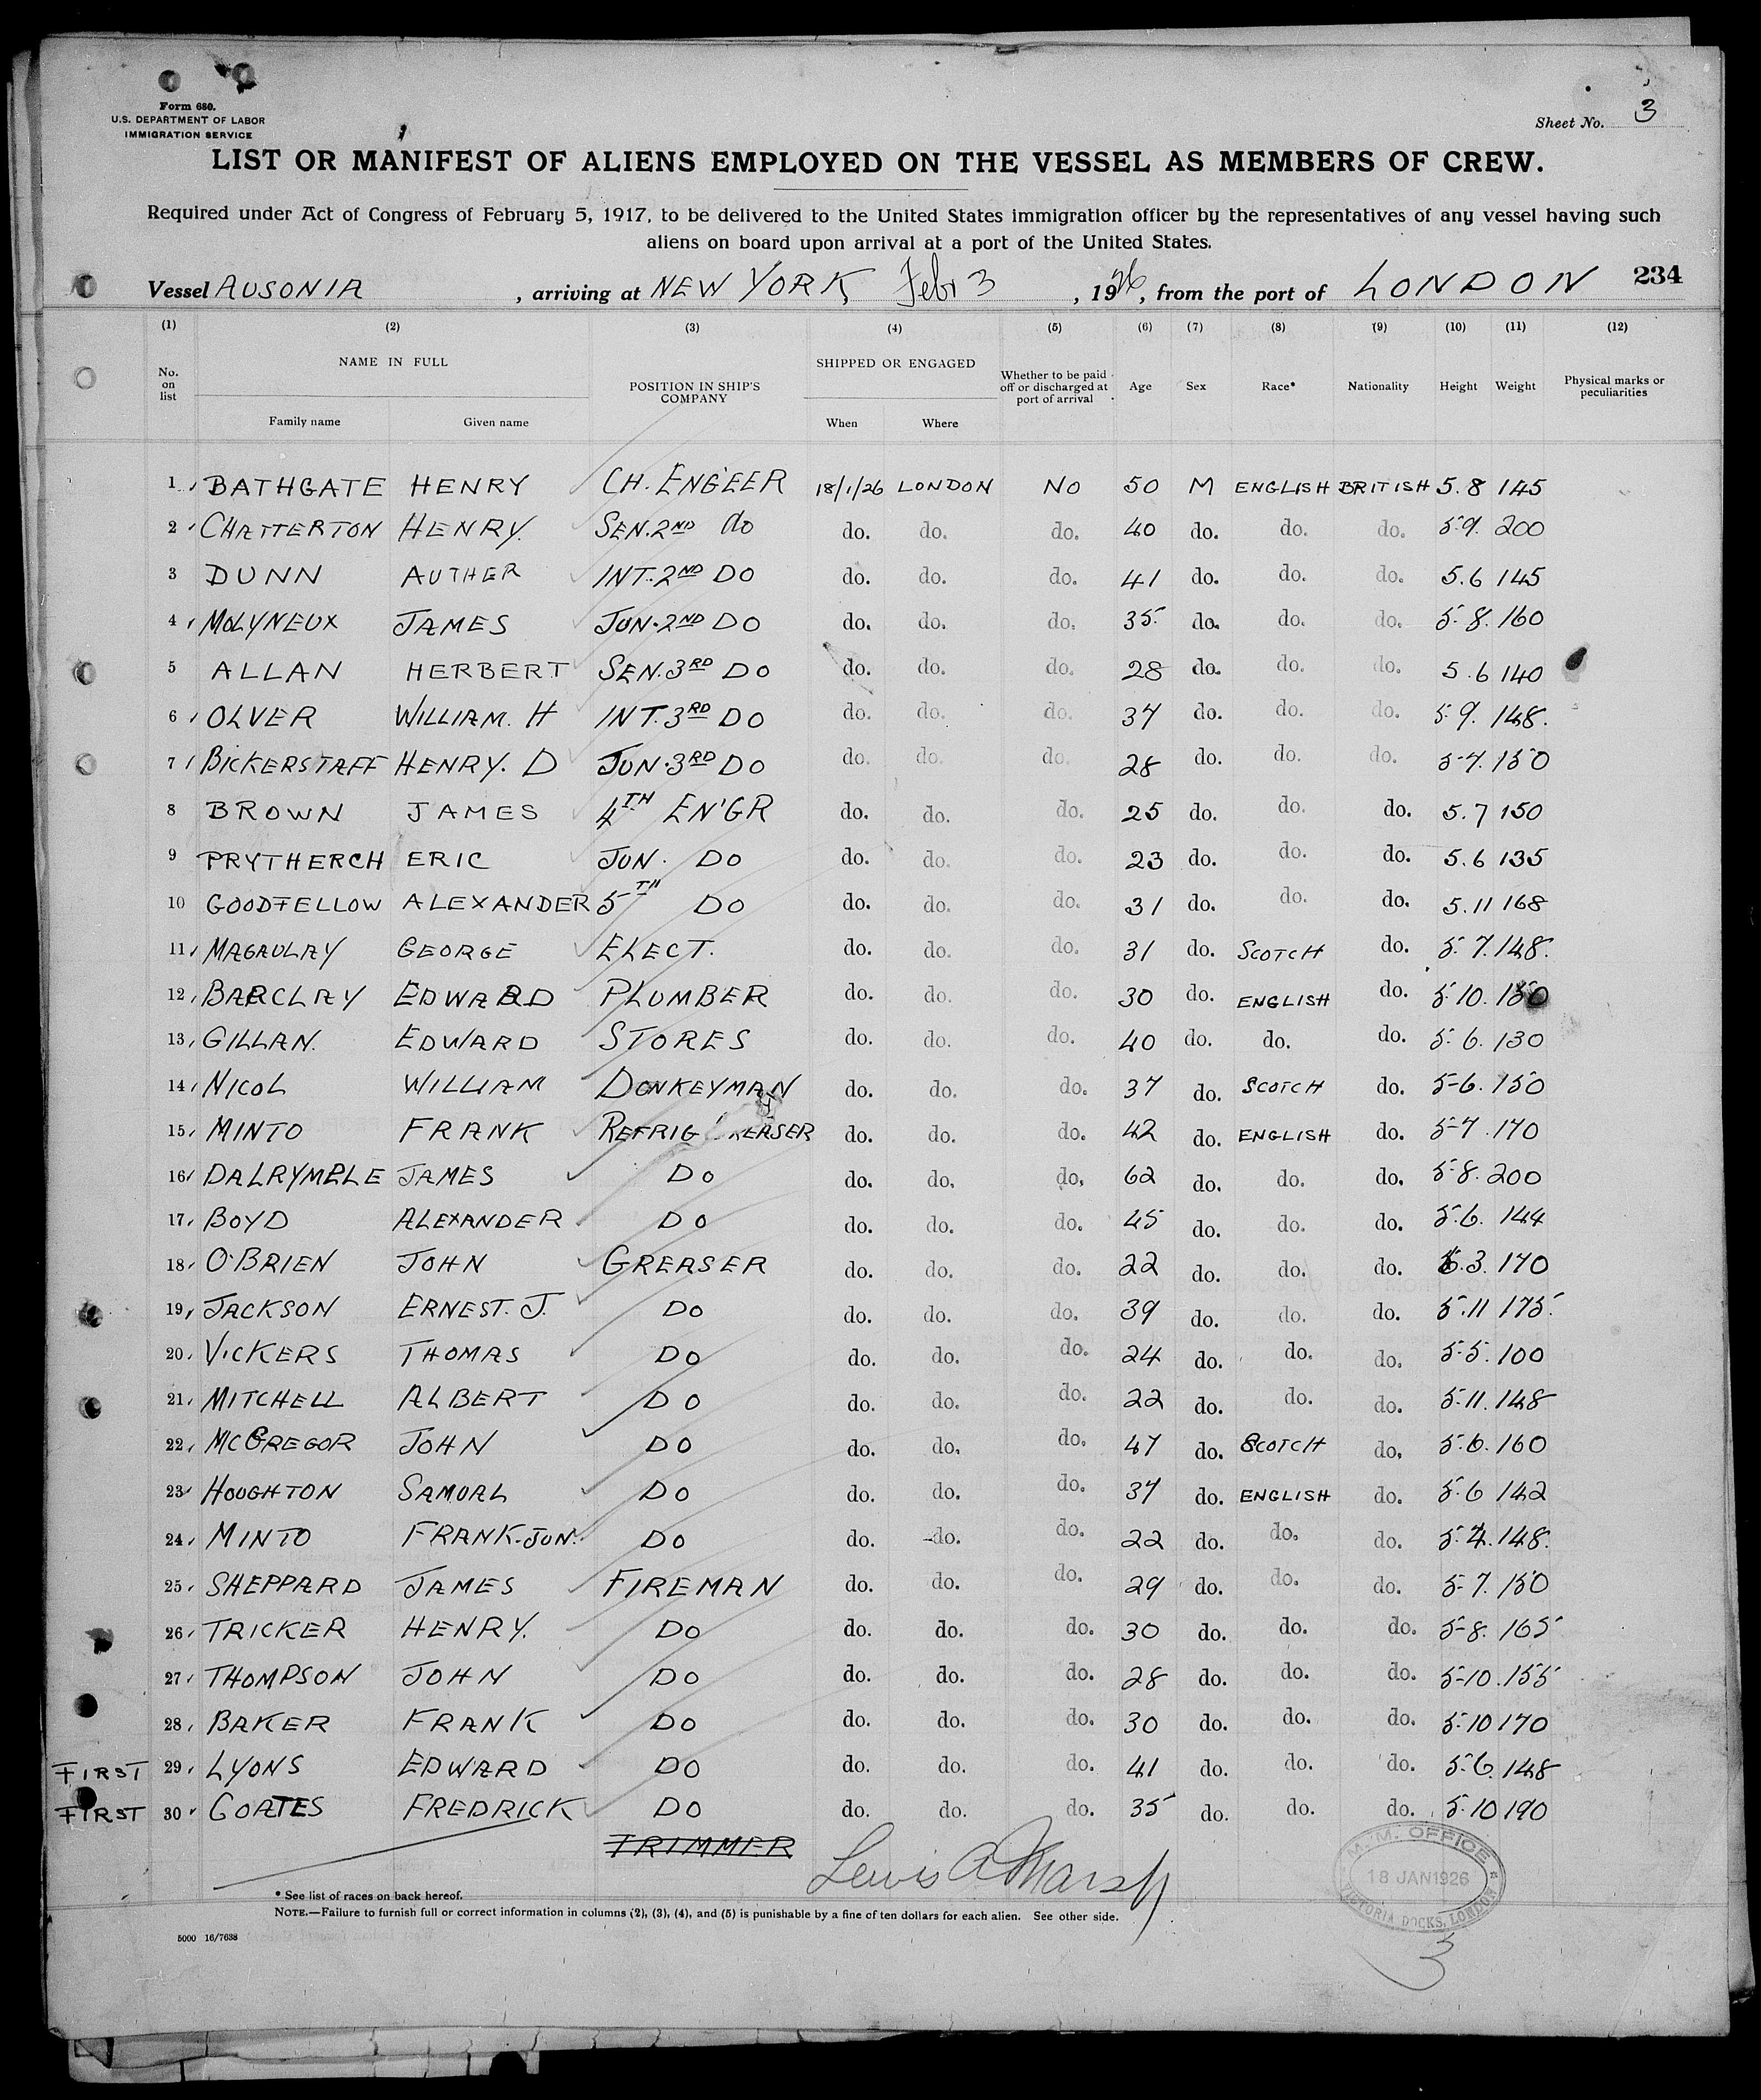 Form 680.
U.S. DEPARTMENT OF LABOR
IMMIGRATION SERVICE
Sheet No. 3
LIST OR MANIFEST OF ALIENS EMPLOYED ON THE VESSEL AS MEMBERS OF CREW.
Required under Act of Congress of February 5, 1917, to be delivered to the United States immigration officer by the representatives of any vessel having such
aliens on board upon arrival at a port of the United States.
Vessel AUSONIA, arriving at NEW YORK, Febr 3, 1926, from the port of LONDON 234
(1) (2) (3) (4) (5) (6) (7) (8) (9) (10) (11) (12)
No. on list NAME IN FULL Family name Given name POSITION IN SHIP'S COMPANY SHIPPED OR ENGAGED When Where Whether to be paid off or discharged at port of arrival Age Sex Race* Nationality Height Weight Physical marks or peculiarities
1 BATHGATE HENRY CH. ENG'EER 18/1/26 LONDON NO 50 M ENGLISH BRITISH 5.8 145
2 CHATTERTON HENRY. SEN. 2ND do do. do. do. 40 do. do. do. 5.9. 200
3 DUNN AUTHER INT. 2ND DO do. do. do. 41 do. do. do. 5.6 145
4 MOLYNEUX JAMES JUN. 2ND DO do. do. do. 35. do. do. do. 5.8. 160
5 ALLAN HERBERT SEN. 3RD DO do. do. do. 28 do. do. do. 5.6 140
6 OLVER WILLIAM. H INT. 3RD DO do. do. do. 37 do. do. do. 5.9. 148.
7 BICKERSTAFF HENRY. D JUN. 3RD DO do. do. do. 28 do. do. do. 5-7. 150
8 BROWN JAMES 4TH EN'GR do. do. do. 25 do. do. do. 5.7 150
9 PRYTHERCH ERIC JUN. DO do. do. do. 23 do. do. do. 5.6 135
10 GOODFELLOW ALEXANDER 5TH DO do. do. do. 31 do. do. do. 5.11 168
11 MAGAULAY GEORGE ELECT. do. do. do. 31 do. SCOTCH do. 5.7. 148.
12 BARCLAY EDWARD PLUMBER do. do. do. 30 do. ENGLISH do. 5.10. 150
13 GILLAN. EDWARD STORES do. do. do. 40 do. do. do. 5.6. 130
14 NICOL WILLIAM DONKEYMAN do. do. do. 37 do. SCOTCH do. 5-6. 150
15 MINTO FRANK REFRIG do. do. do. 42 do. ENGLISH do. 5-7. 170
16 DALRYMPLE JAMES DO do. do. do. 62 do. do. do. 5.8. 200
17 BOYD ALEXANDER DO do. do. do. 45 do. do. do. 5.6. 144
18 O'BRIEN JOHN GREASER do. do. do. 22 do. do. do. 6.3. 170
19 JACKSON ERNEST. J. DO do. do. do. 39 do. do. do. 5.11 175.
20 VICKERS THOMAS DO do. do. do. 24 do. do. do. 5.5. 100
21 MITCHELL ALBERT DO do. do. do. 22 do. do. do. 5.11. 148
22 MCGREGOR JOHN DO do. do. do. 47 do. SCOTCH do. 5.6. 160
23 HOUGHTON SAMUAL DO do. do. do. 37 do. ENGLISH do. 5.6 142
24 MINTO FRANK-JUN. DO do. do. do. 22 do. do. do. 5.4. 148.
25 SHEPPARD JAMES FIREMAN do. do. do. 29 do. do. do. 5-7. 150
26 TRICKER HENRY. DO do. do. do. 30 do. do. do. 5-8. 165
27 THOMPSON JOHN DO do. do. do. 28 do. do. do. 5-10. 155
28 BAKER FRANK DO do. do. do. 30 do. do. do. 5.10 170
FIRST 29 LYONS EDWARD DO do. do. do. 41 do. do. do. 5.6. 148
FIRST 30 COATES FREDRICK DO do. do. do. 35 do. do. do. 5.10 190
TRIMMER
Lewis A Marsh
M.M. OFFICE
18 JAN 1926
VICTORIA DOCKS, LONDON
* See list of races on back hereof.
NOTE.—Failure to furnish full or correct information in columns (2), (3), (4), and (5) is punishable by a fine of ten dollars for each alien. See other side.
5000 16/7638
3